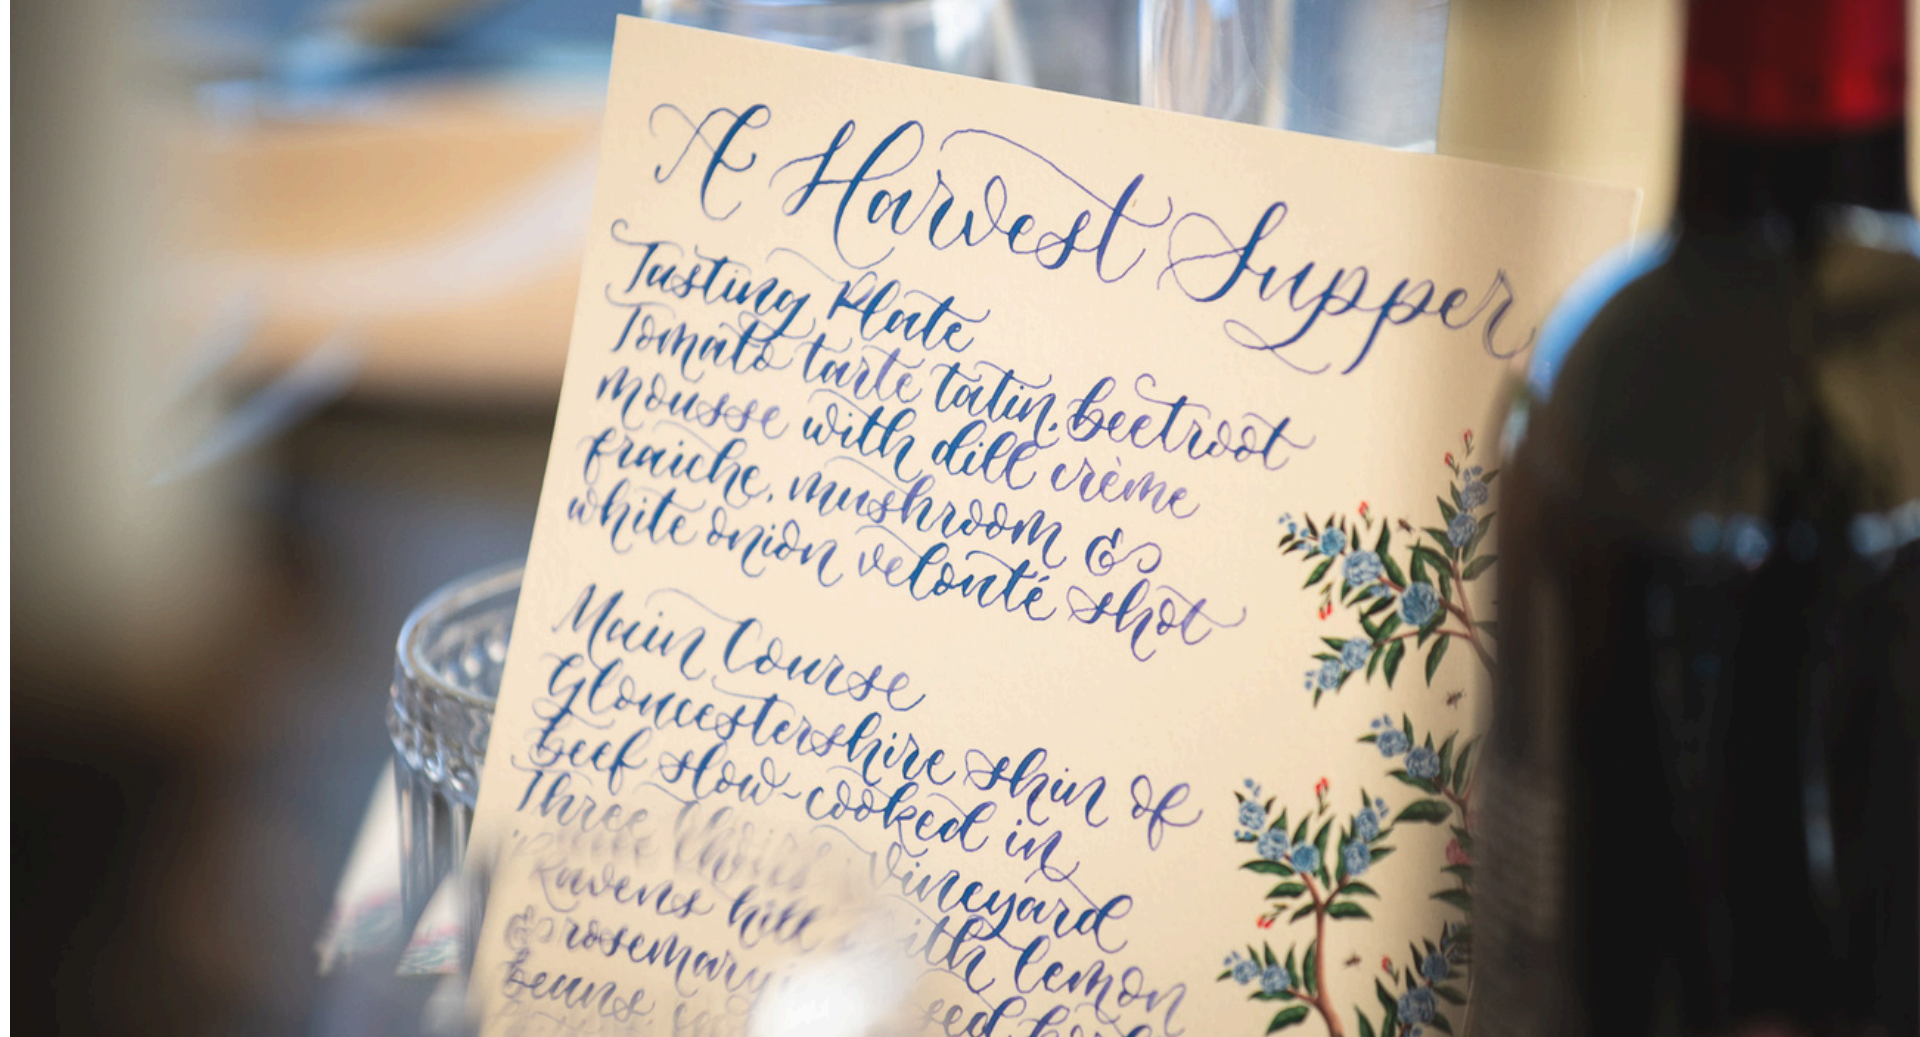 A Harvest Supper
Tasting Plate
Tomato tarte tatin, beetroot
mousse with dill crème
fraiche, mushroom &
white onion velouté shot
Main Course
Gloucestershire shin of
beef slow-cooked in
Three Choirs Vineyard
Ravens hill with lemon
& rosemary
beans